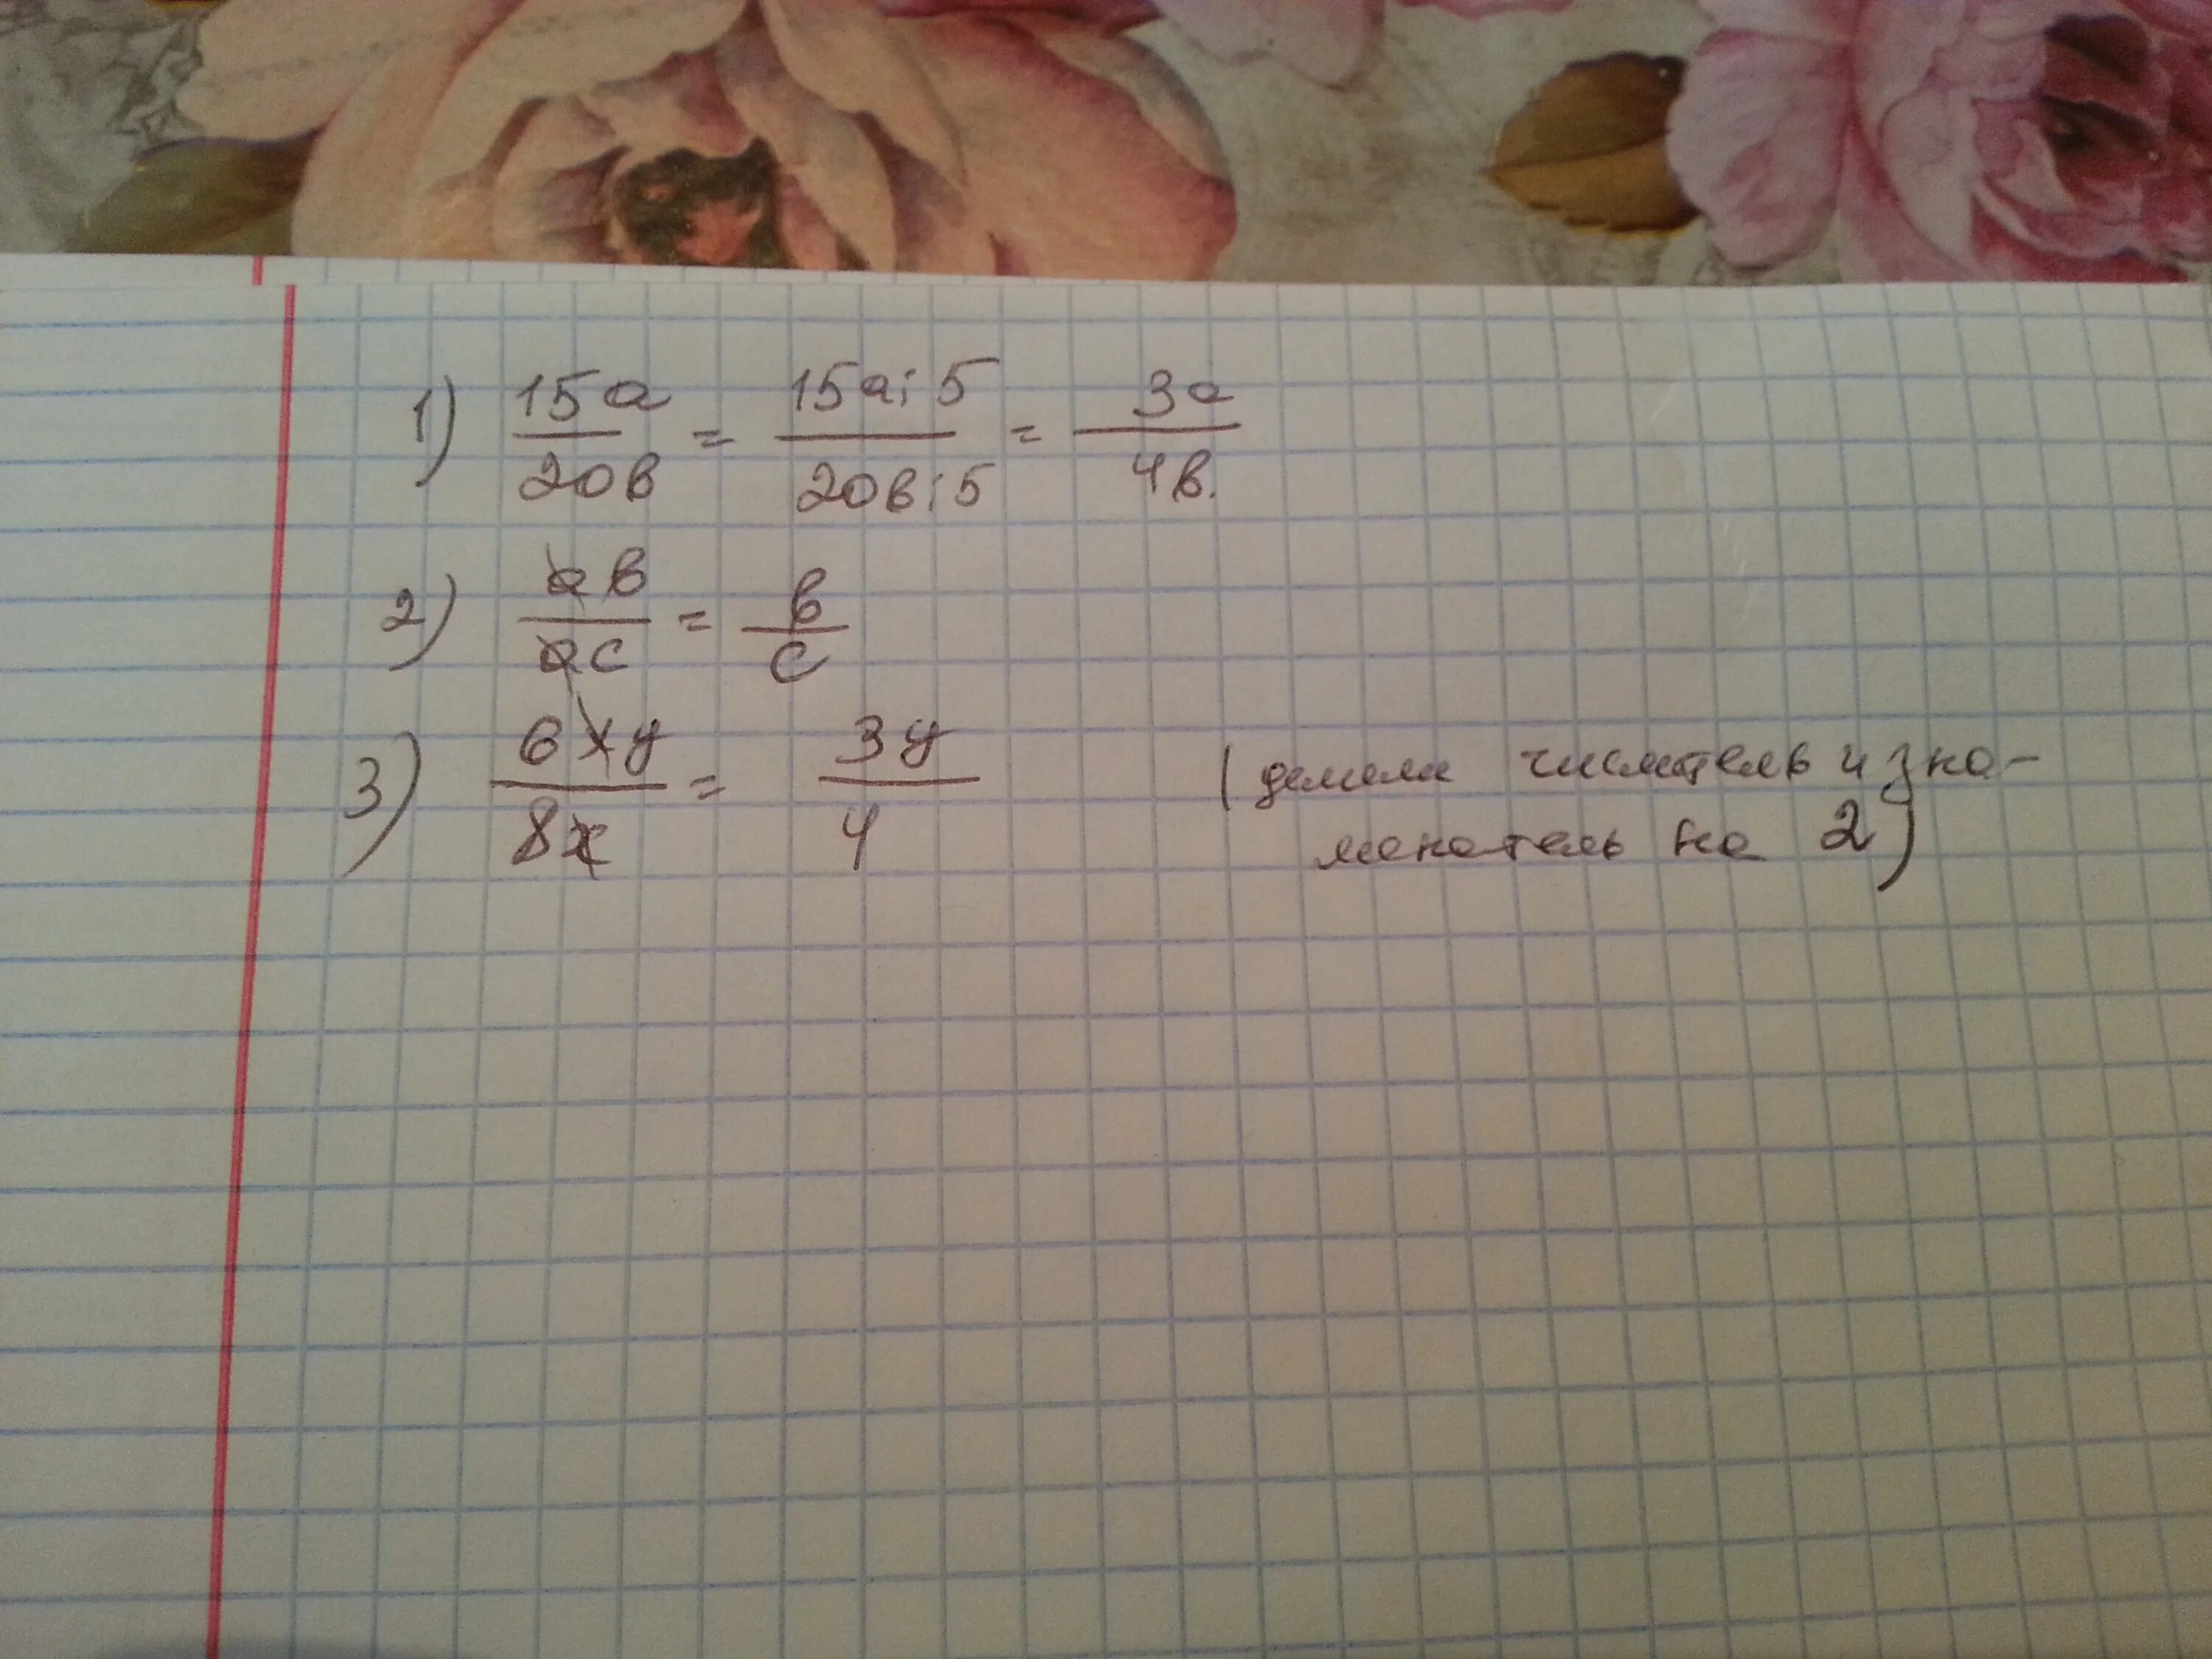 1) 15a/20в = 15a:5/20в:5 = 3a/4в.
2) aв/ac = в/c
3) 6xy/8x = 3y/4 (делим числитель и зна-
менатель на 2)